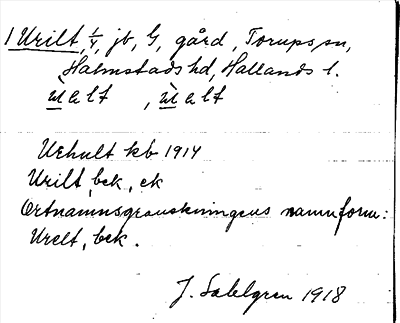 1 Urilt, 1/4, jb, G, gård, Torups sn,
Halmstads hd, Hallands l.
ùlt, ùlt
Uhult kb 1914
Urilt, bek, ek
Ortnamnsgranskningens namnform:
Urelt, bek.
J. Sahlgren 1918